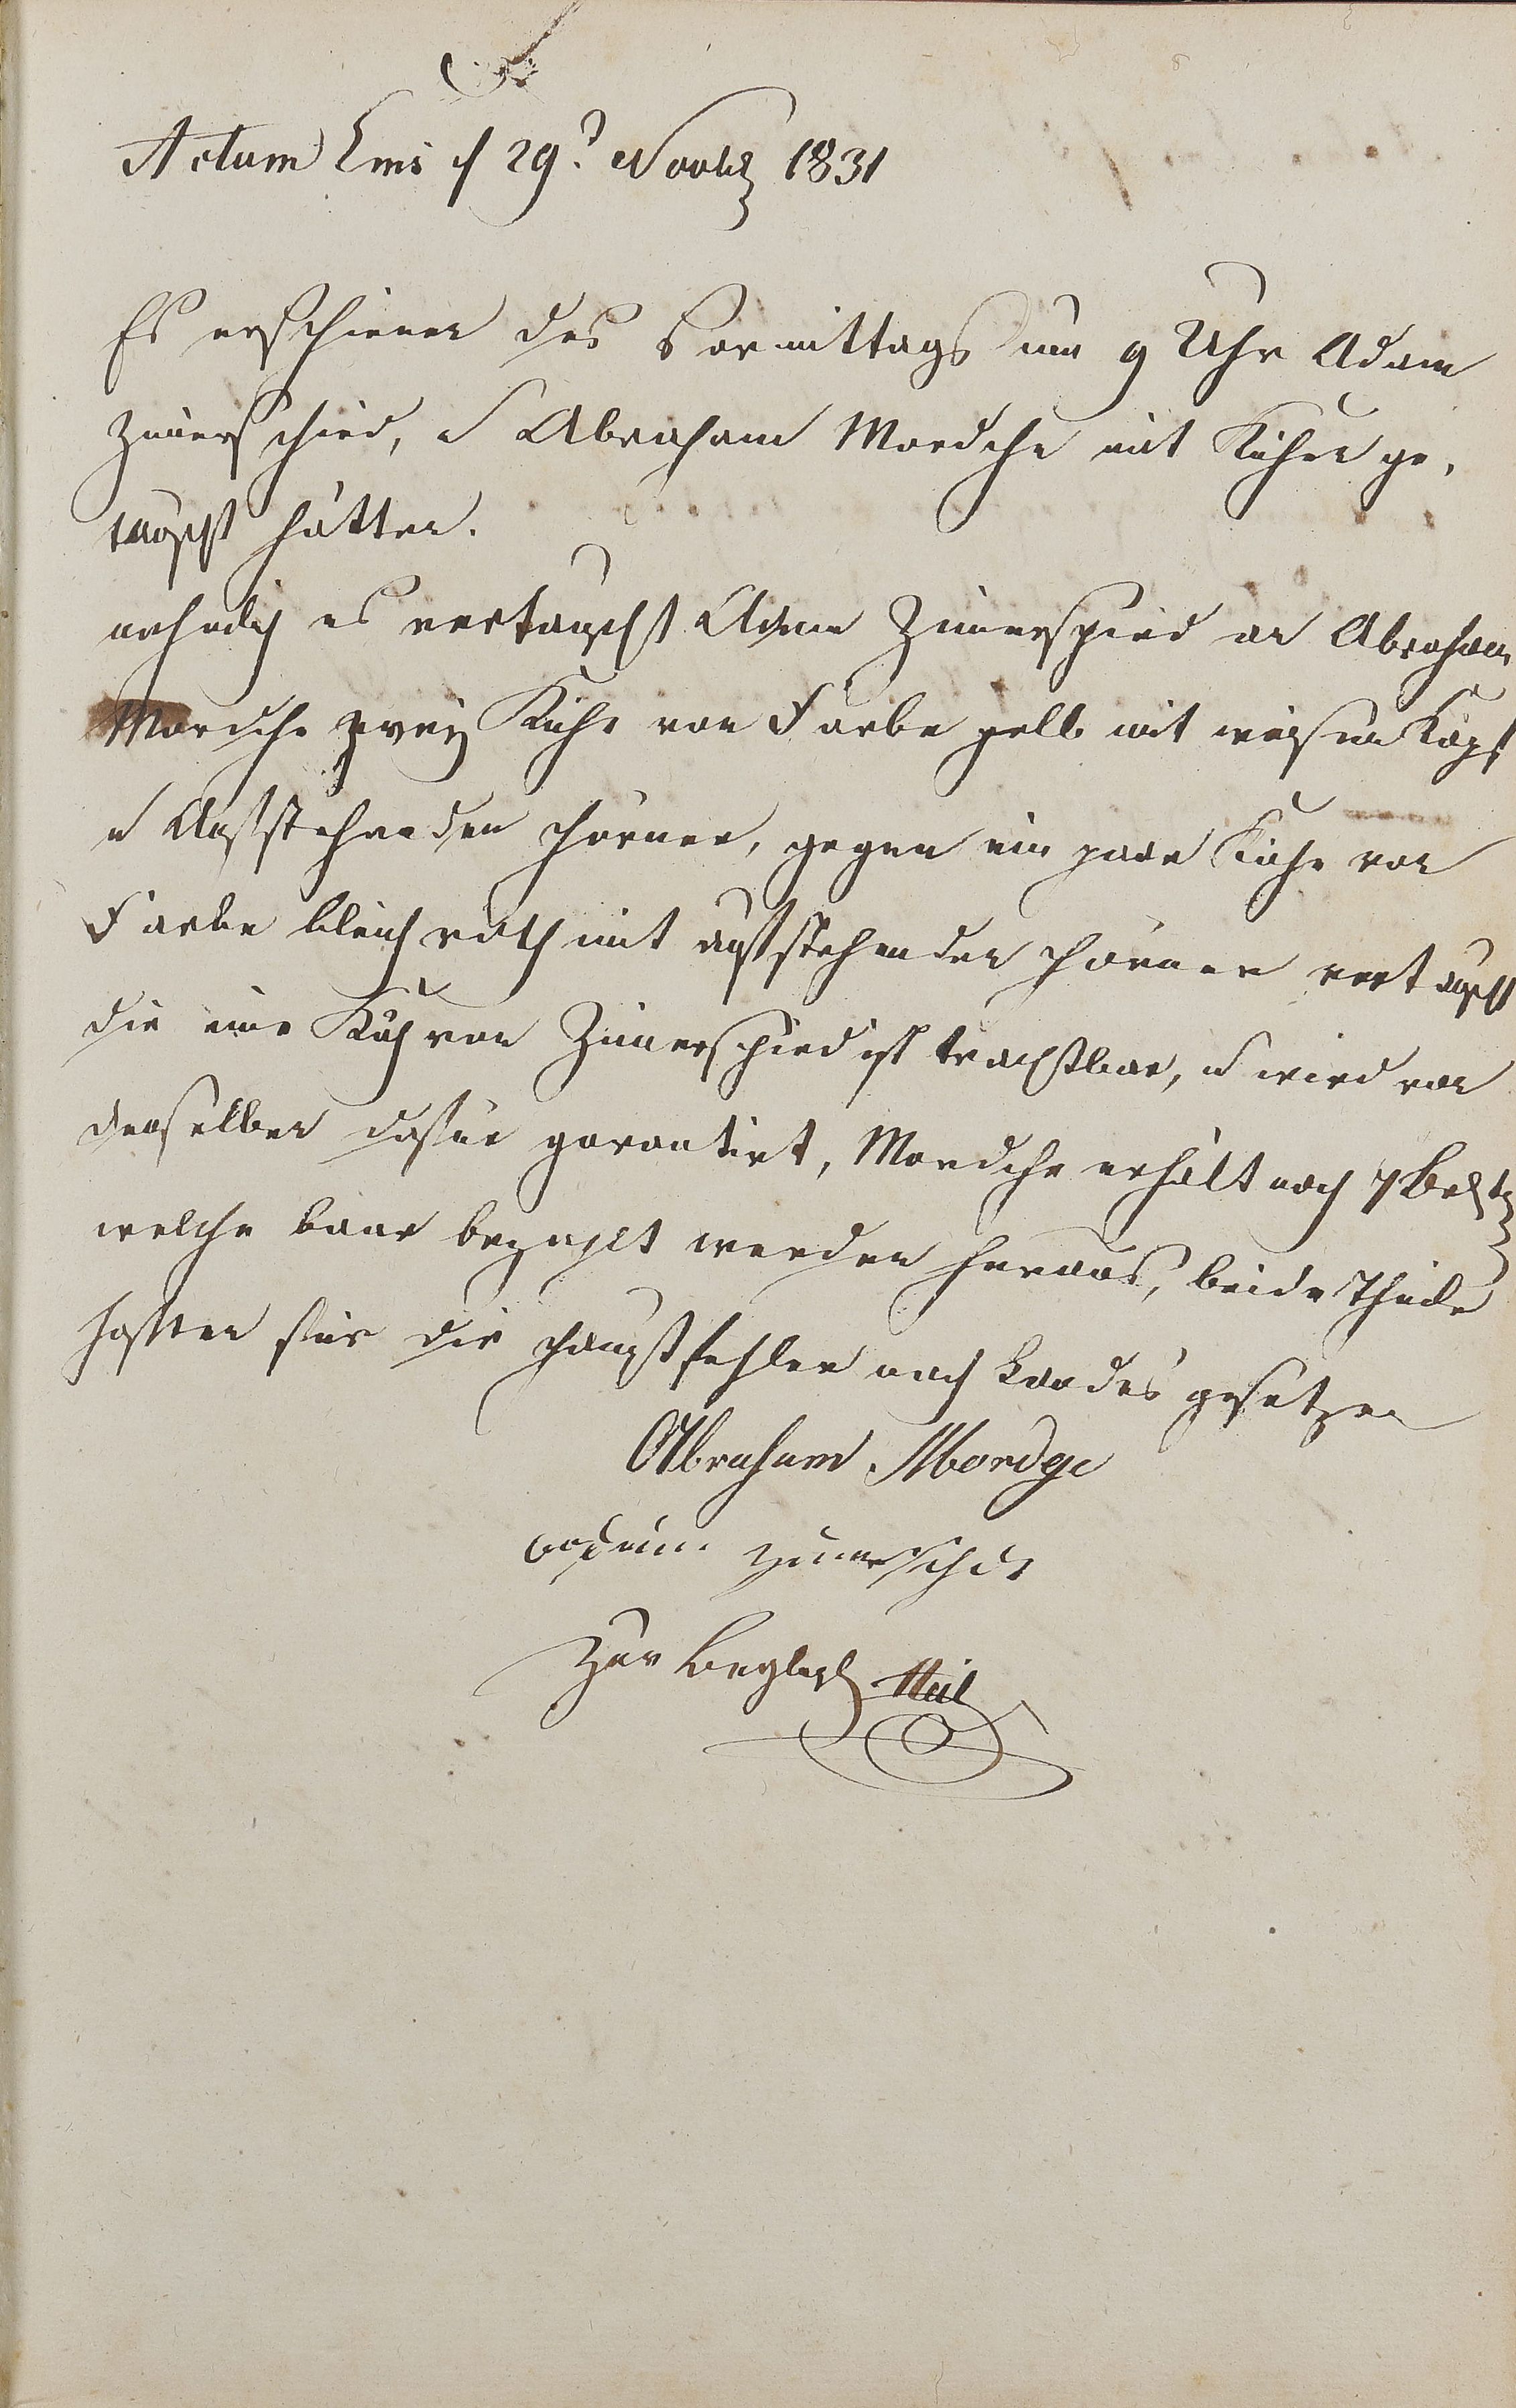 Actum Ems d 29t Novbr 1831
Es erschienen des Vormittags um 9 Uhr Adam
Zimerschied, u Abraham Mordche mit Kühen ge,
tauscht hätten.
nehmlich es vertauscht Adam Zimerschied an Abraham
Mordche zwey Kühe von Farbe gelb mit weisem Kopf
u Aufstehenden Hörner, gegen ein paar Kühe von
Farbe bleich roth mit aufstehenden Hörner vertauscht
die eine Kuh von Zimerschied ist trachtbar, u wird von
demselben dafür garantirt, Mordche erhält noch 7
welche baar bezahlt werden heraus, beide Theile
haften für die Hauptfehler nach Landes gesetzen
Abraham Mordge
Adam Zimerschid
Zur Beglbg